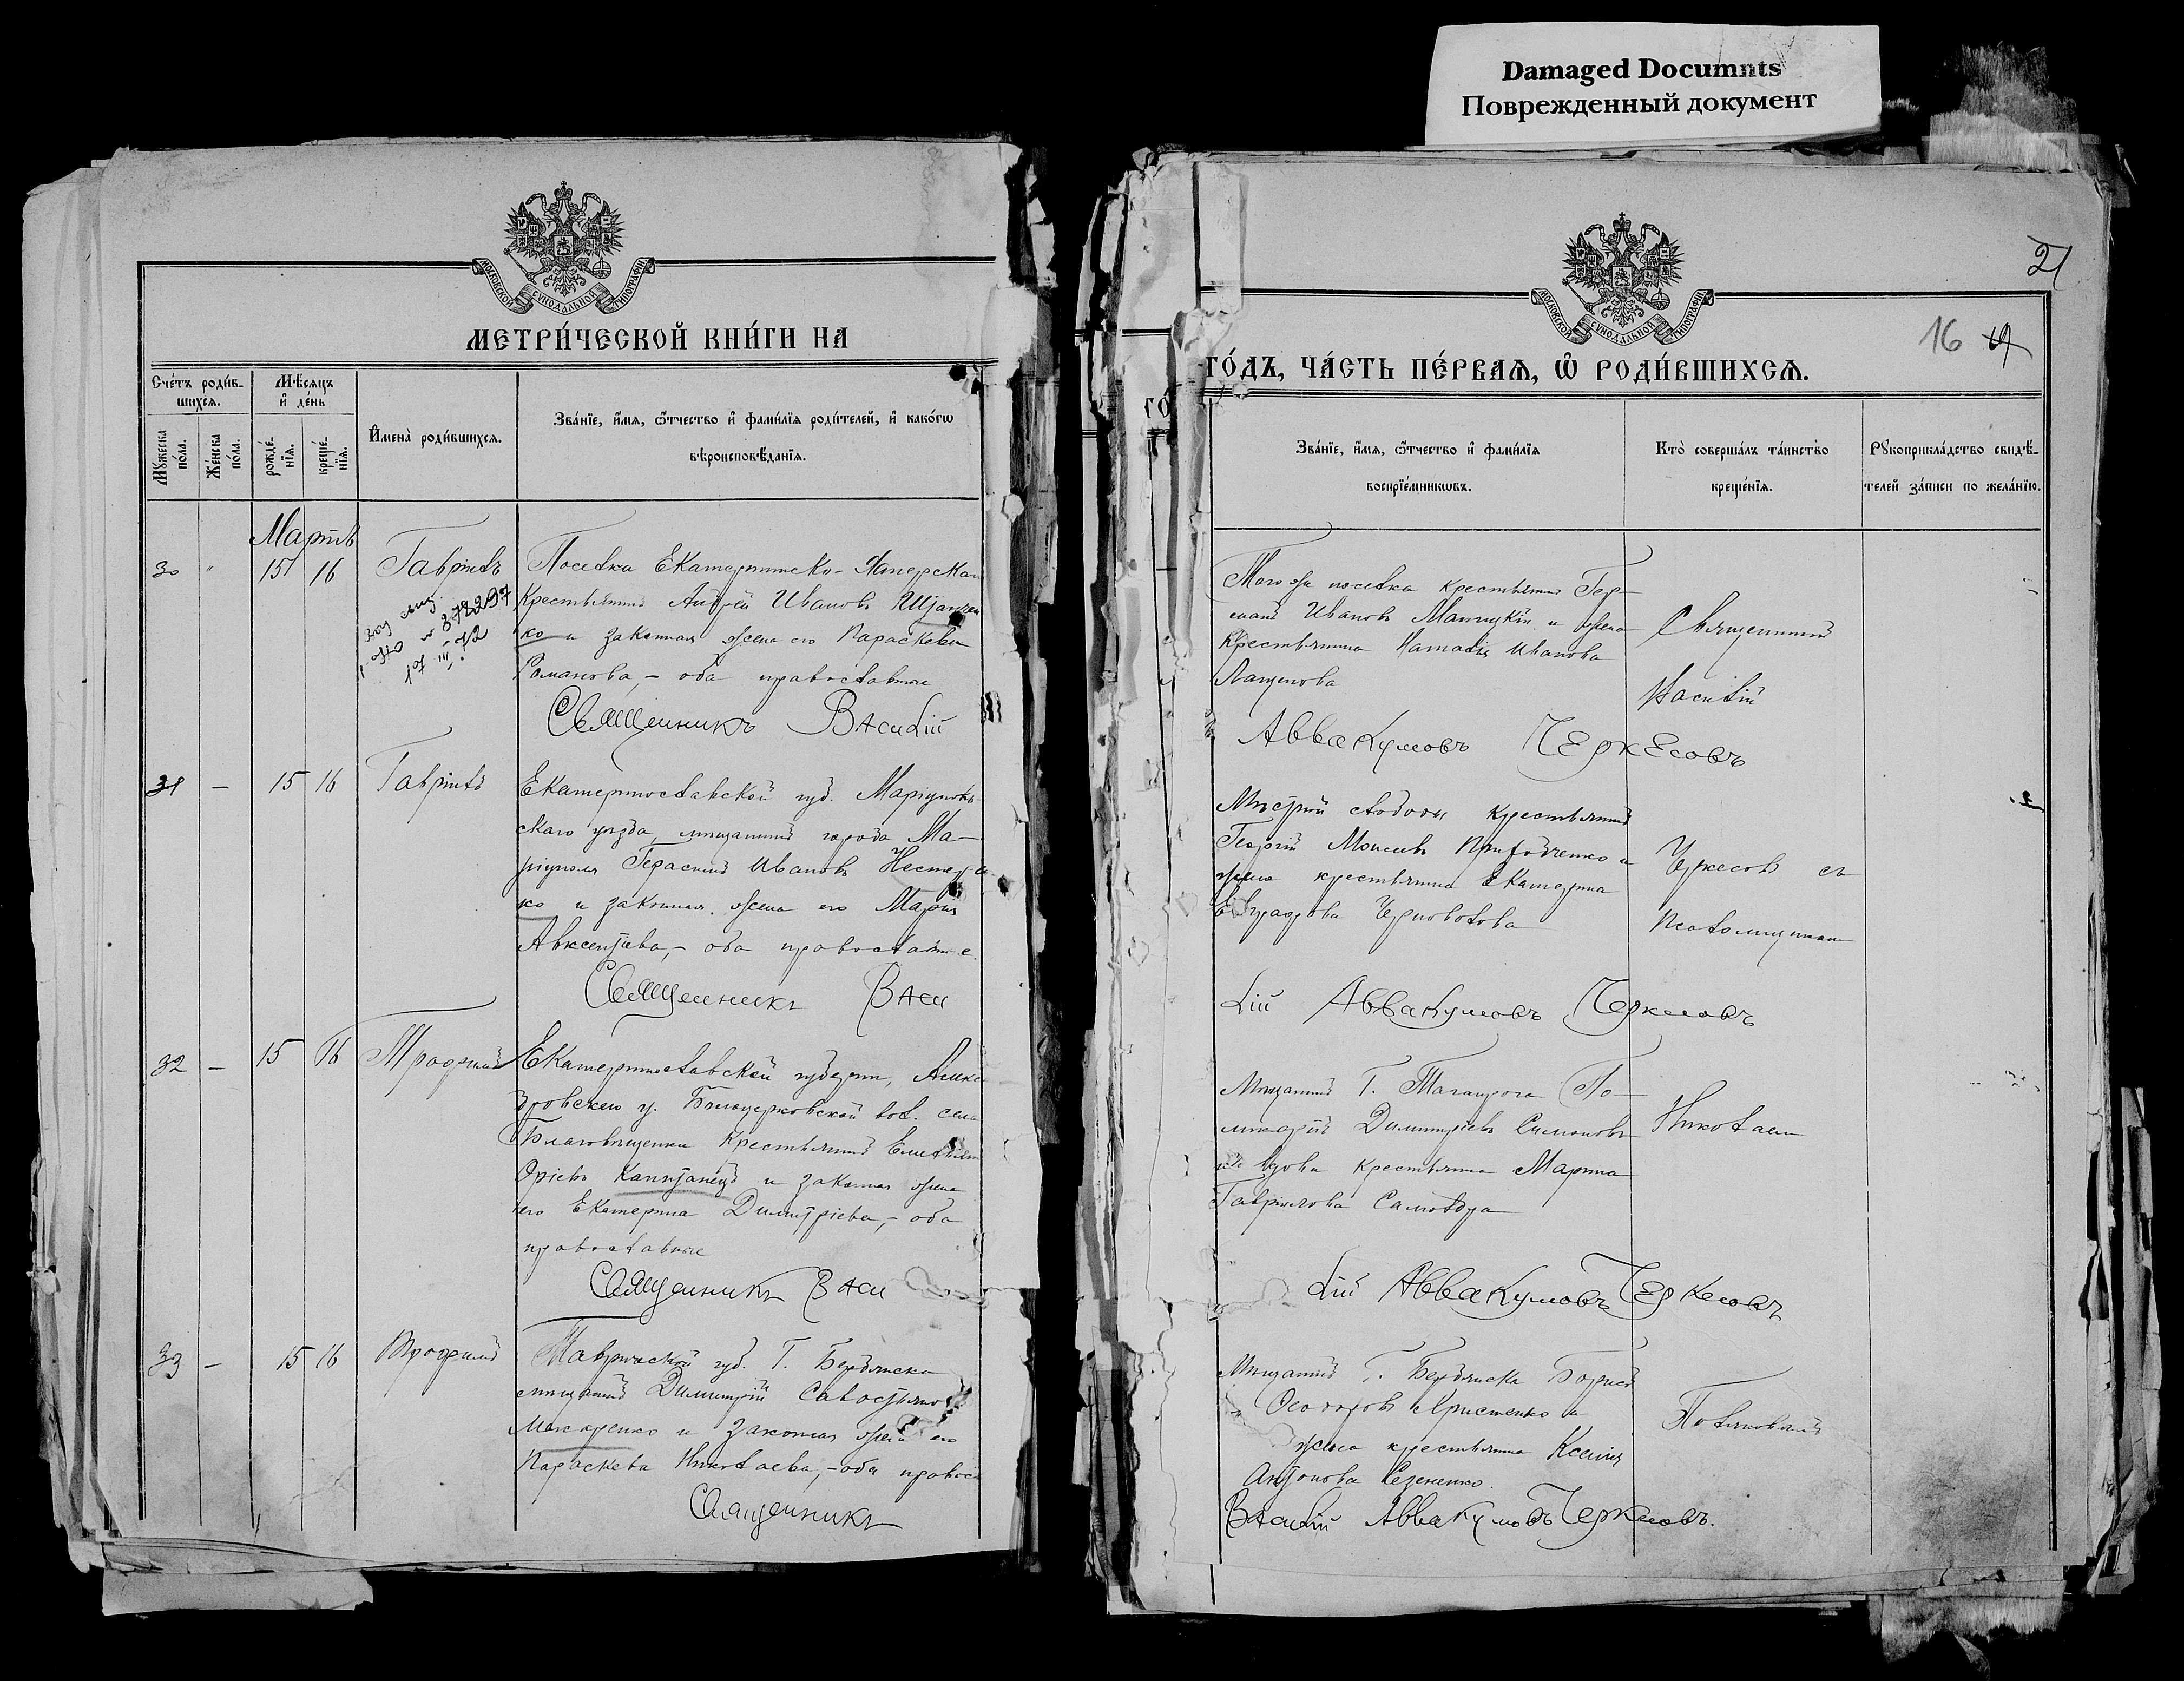 Damaged Documnts
Поврежденный документ
МОСКОВСКОЙ СѴНОДАЛЬНОЙ ТИПОГРАФІИ
МЕТРИ́ЧЕСКОЙ КНИ́ГИ НА
Сче́тъ роди́вшихсѧ.
Мѣ́сяцъ и҆ де́нь
И҆мена̀ роди́вшихсѧ.
Зва́нїе, и҆́мѧ, ѻ҆́тчество и҆ фами́лїѧ роди́телей, и҆ како́гѡ
вѣроисповѣ́данїѧ.
Мꙋ́жеска по́ла.
Же́нска по́ла.
рожде́нїѧ.
креще́нїѧ.
Мартъ
30 " 15 16 Гавріилъ
Поселка Екатериновско-
Крестьянинъ Андрей Ивановъ
ко и законная жена его Параскева
Романова, – оба православные
Священникъ Василій
17 III 72
31 – 15 16 Гавріилъ
Екатеринославской губ. Маріуполь
скаго уѣзда, мѣщанинъ города Ма–
ріуполя Герасимъ Ивановъ Нестерен
ко и законная жена его Марія
Авксентіева, – оба православные
Священникъ Васи
32 – 15 16 Трофимъ
Екатеринославской губерніи, Алекс
дровскаго у. Бѣлоцерковской вол. села
Благовѣщенки Крестьянинъ Емельянъ
и законная жена
его Екатерина Димитріева, – оба
православные
Священникъ Васи
33 – 15 16 Трофимъ
Таврической губ. Г. Бердянска
мѣщанинъ Димитрій Савостьяновъ
Макаренко и законная жена его
Параскева Николаева, – оба правосл
Священникъ
21
МОСКОВСКОЙ СѴНОДАЛЬНОЙ ТИПОГРАФІИ
16
ГО́ДЪ, ЧА́СТЬ ПЕ́РВАѦ, Ѡ҆ РОДИ́ВШИХСѦ.
Зва́нїе, и҆́мѧ, ѻ҆́тчество и҆ фами́лїѧ
воспрїе́мникѡвъ.
Кто̀ соверша́лъ та́инство
креще́нїѧ.
Рꙋкоприкла́дство свидѣ́-
телей за́писи по жела́нїю.
Того же поселка крестьянинъ Гер–
манъ Ивановъ и жена
Крестьянина Наталія Иванова
Лащенова
Аввакумовъ Черкесовъ
Священникъ
Василій
слободы крестьянинъ
Георгій Моисеевъ Приходченко и
жена крестьянина Екатерина
Евграфова
лій Аввакумовъ Черкесовъ
Черкесовъ съ
Псаломщикомъ
Мѣщанинъ Г. Таганрога По–
ликарпъ Димитріевъ Симоновъ
и вдова крестьянина Марина
Гаврилова
лій Аввакумовъ Черкесовъ
Николаемъ
Мѣщанинъ Г. Бердянска Борисъ
Ѳеодоровъ Христенко и
жена крестьянина Ксенія
Антонова
Василій Аввакумовъ Черкесовъ.